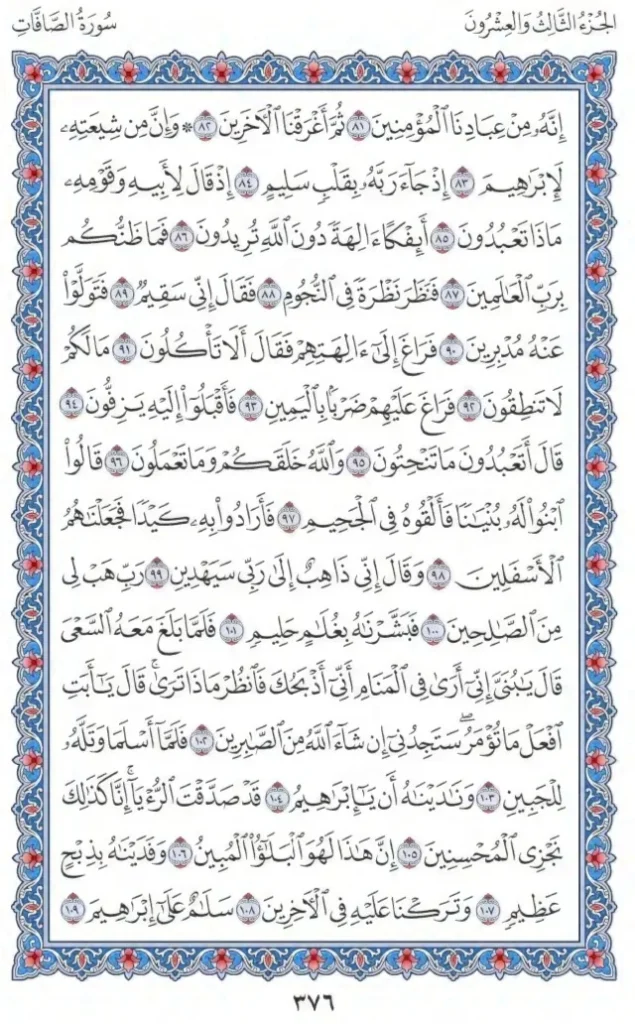 الجُزْءُ الثَّالِثُ وَالعِشْرُونَ
سُورَةُ الصَّافَّاتِ
إِنَّهُۥ مِنْ عِبَادِنَا ٱلْمُؤْمِنِينَ ٨١ ثُمَّ أَغْرَقْنَا ٱلْأَخَرِينَ ٨٢ ۞ وَإِنَّ مِن شِيعَتِهِۦ
لَإِبْرَٰهِيمَ ٨٣ إِذْ جَآءَ رَبَّهُۥ بِقَلْبٍ سَلِيمٍ ٨٤ إِذْ قَالَ لِأَبِيهِ وَقَوْمِهِۦ
مَاذَا تَعْبُدُونَ ٨٥ أَئِفْكًا ءَالِهَةً دُونَ ٱللَّهِ تُرِيدُونَ ٨٦ فَمَا ظَنُّكُم
بِرَبِّ ٱلْعَٰلَمِينَ ٨٧ فَنَظَرَ نَظْرَةً فِي ٱلنُّجُومِ ٨٨ فَقَالَ إِنِّي سَقِيمٌ ٨٩ فَتَوَلَّوْا۟
عَنْهُ مُدْبِرِينَ ٩٠ فَرَاغَ إِلَىٰٓ ءَالِهَتِهِمْ فَقَالَ أَلَا تَأْكُلُونَ ٩١ مَا لَكُمْ
لَا تَنطِقُونَ ٩٢ فَرَاغَ عَلَيْهِمْ ضَرْبًۢا بِٱلْيَمِينِ ٩٣ فَأَقْبَلُوٓا۟ إِلَيْهِ يَزِفُّونَ ٩٤
قَالَ أَتَعْبُدُونَ مَا تَنْحِتُونَ ٩٥ وَٱللَّهُ خَلَقَكُمْ وَمَا تَعْمَلُونَ ٩٦ قَالُوا۟
ٱبْنُوا۟ لَهُۥ بُنْيَٰنًا فَأَلْقُوهُ فِي ٱلْجَحِيمِ ٩٧ فَأَرَادُوا۟ بِهِۦ كَيْدًا فَجَعَلْنَٰهُمُ
ٱلْأَسْفَلِينَ ٩٨ وَقَالَ إِنِّي ذَاهِبٌ إِلَىٰ رَبِّي سَيَهْدِينِ ٩٩ رَبِّ هَبْ لِي
مِنَ ٱلصَّٰلِحِينَ ١٠٠ فَبَشَّرْنَٰهُ بِغُلَٰمٍ حَلِيمٍ ١٠١ فَلَمَّا بَلَغَ مَعَهُ ٱلسَّعْيَ
قَالَ يَٰبُنَيَّ إِنِّيٓ أَرَىٰ فِي ٱلْمَنَامِ أَنِّيٓ أَذْبَحُكَ فَٱنظُرْ مَاذَا تَرَىٰ ۚ قَالَ يَٰٓأَبَتِ
ٱفْعَلْ مَا تُؤْمَرُ ۖ سَتَجِدُنِيٓ إِن شَآءَ ٱللَّهُ مِنَ ٱلصَّٰبِرِينَ ١٠٢ فَلَمَّآ أَسْلَمَا وَتَلَّهُۥ
لِلْجَبِينِ ١٠٣ وَنَٰدَيْنَٰهُ أَن يَٰٓإِبْرَٰهِيمُ ١٠٤ قَدْ صَدَّقْتَ ٱلرُّءْيَآ ۚ إِنَّا كَذَٰلِكَ
نَجْزِي ٱلْمُحْسِنِينَ ١٠٥ إِنَّ هَٰذَا لَهُوَ ٱلْبَلَٰٓؤُا۟ ٱلْمُبِينُ ١٠٦ وَفَدَيْنَٰهُ بِذِبْحٍ
عَظِيمٍ ١٠٧ وَتَرَكْنَا عَلَيْهِ فِي ٱلْأَخِرِينَ ١٠٨ سَلَٰمٌ عَلَىٰٓ إِبْرَٰهِيمَ ١٠٩
٣٧٦